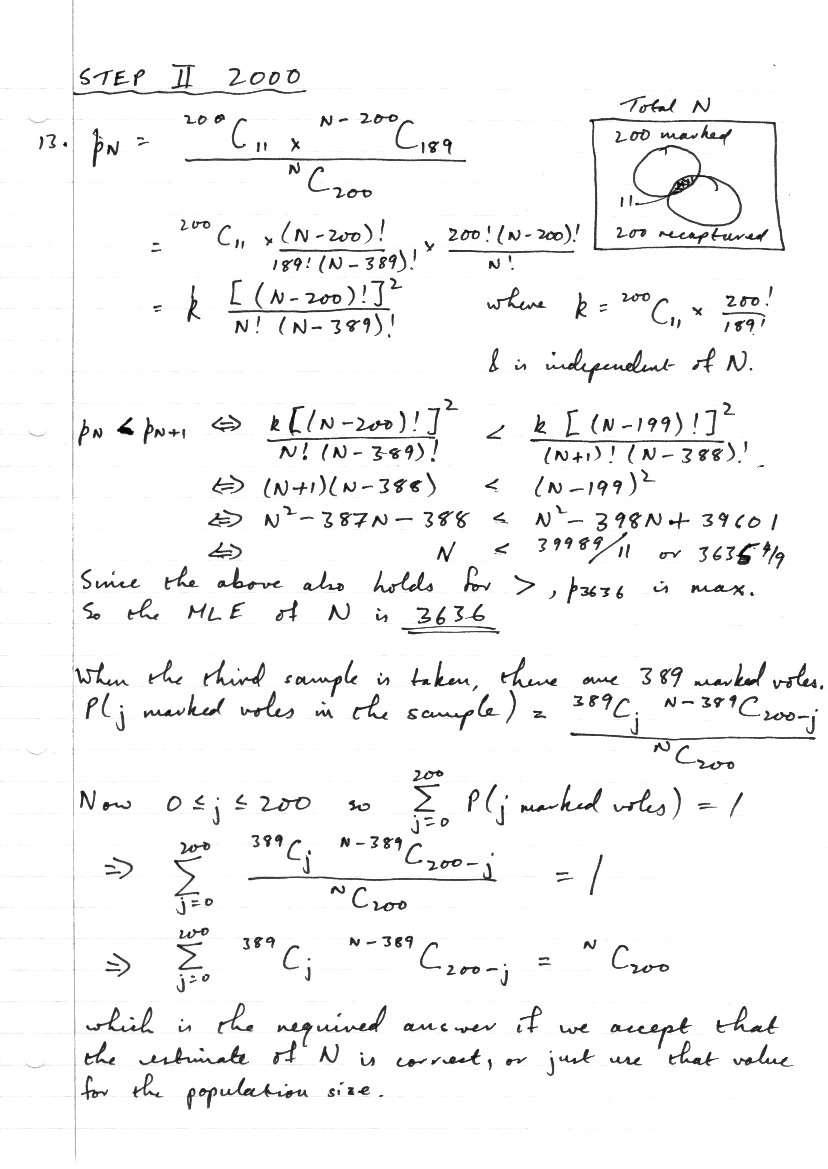 STEP II 2000
Total N
200 marked
11
200 recaptured
13. pN = ²⁰⁰C₁₁ × ᴺ⁻²⁰⁰C₁₈₉ / ᴺC₂₀₀
= ²⁰⁰C₁₁ × (N-200)! / 189! (N-389)! × 200! (N-200)! / N!
= k [(N-200)!]² / N! (N-389)! where k = ²⁰⁰C₁₁ × 200! / 189!
& is independent of N.
pN < pN+1 ⇔ k[(N-200)!]² / N! (N-389)! < k [(N-199)!]² / (N+1)! (N-388)!
⇔ (N+1)(N-388) < (N-199)²
⇔ N² - 387N - 388 < N² - 398N + 39601
⇔ N < 39989/11 or 3635 4/9
Since the above also holds for >, p3636 is max.
So the MLE of N is 3636
When the third sample is taken, there are 389 marked voles.
P(j marked voles in the sample) = ³⁸⁹Cj ᴺ⁻³⁸⁹C200-j / ᴺC₂₀₀
Now 0 ≤ j ≤ 200 so ²⁰⁰Σj=0 P(j marked voles) = 1
⇒ ²⁰⁰Σj=0 ³⁸⁹Cj ᴺ⁻³⁸⁹C200-j / ᴺC₂₀₀ = 1
⇒ ²⁰⁰Σj=0 ³⁸⁹Cj ᴺ⁻³⁸⁹C200-j = ᴺC₂₀₀
which is the required answer if we accept that
the estimate of N is correct, or just use that value
for the population size.